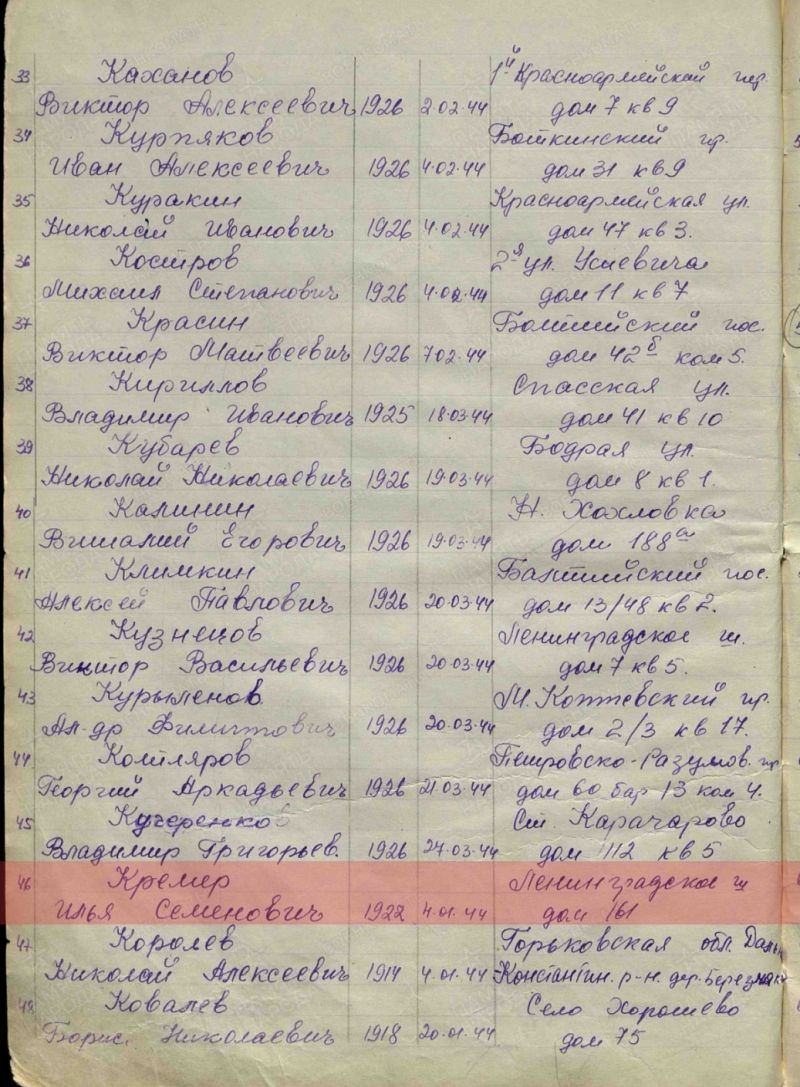 33 Каханов 1й Красноармейский пер.
Виктор Алексеевич 1926 2.02.44 дом 7 кв 9
34 Курпяков Боткинский пр.
Иван Алексеевич 1926 4.02.44 дом 31 кв 9
35 Куракин Красноармейская ул.
Николай Иванович 1926 4.02.44 дом 47 кв 3.
36 Костров 2-я ул. Усиевича
Михаил Степанович 1926 4.02.44 дом 11 кв 7
37 Красин Балтийский пос.
Виктор Матвеевич 1926 7.02.44 дом 42б ком 5.
38 Кириллов Спасская ул.
Владимир Иванович 1925 18.03.44 дом 41 кв 10
39 Кубарев Бодрая ул.
Николай Николаевич 1926 19.03.44 дом 8 кв 1.
40 Калинин Н. Хохловка
Виталий Егорович 1926 19.03.44 дом 188а
41 Климкин Балтийский пос.
Алексей Павлович 1926 20.03.44 дом 13/48 кв 2.
42 Кузнецов Ленинградское ш.
Виктор Васильевич 1926 20.03.44 дом 7 кв 5.
43 Курыленов М. Коптевский пр.
Ал-др Филиппович 1926 20.03.44 дом 2/3 кв 17.
44 Котляров Петровско-Разумов. пр
Георгий Аркадьевич 1926 21.03.44 дом 60 бар 13 ком 4.
45 Кучеренков Ст. Карачарово
Владимир Григорьев. 1926 27.03.44 дом 112 кв 5
46 Кремер Ленинградское ш
Илья Семенович 1922 4.01.44 дом 161
47 Королев Горьковская обл. Даль
Николай Алексеевич 1914 4.01.44 Константин. р-н. дер.
48 Ковалев Село Хорошево
Борис Николаевич 1918 20.01.44 дом 75